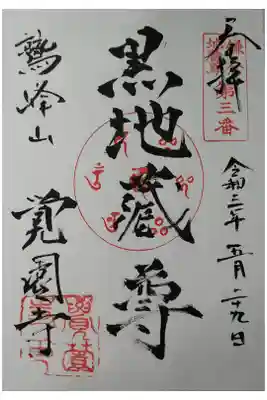 奉拝
第三番
令和三年五月二十九日
黒地蔵尊
鷲峰山
覚園寺